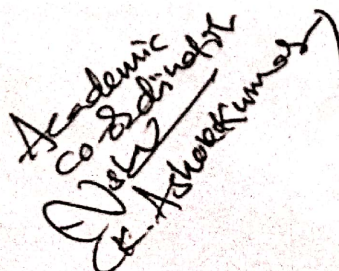 Academic
co ordinator
(K. Ashok Kumar)